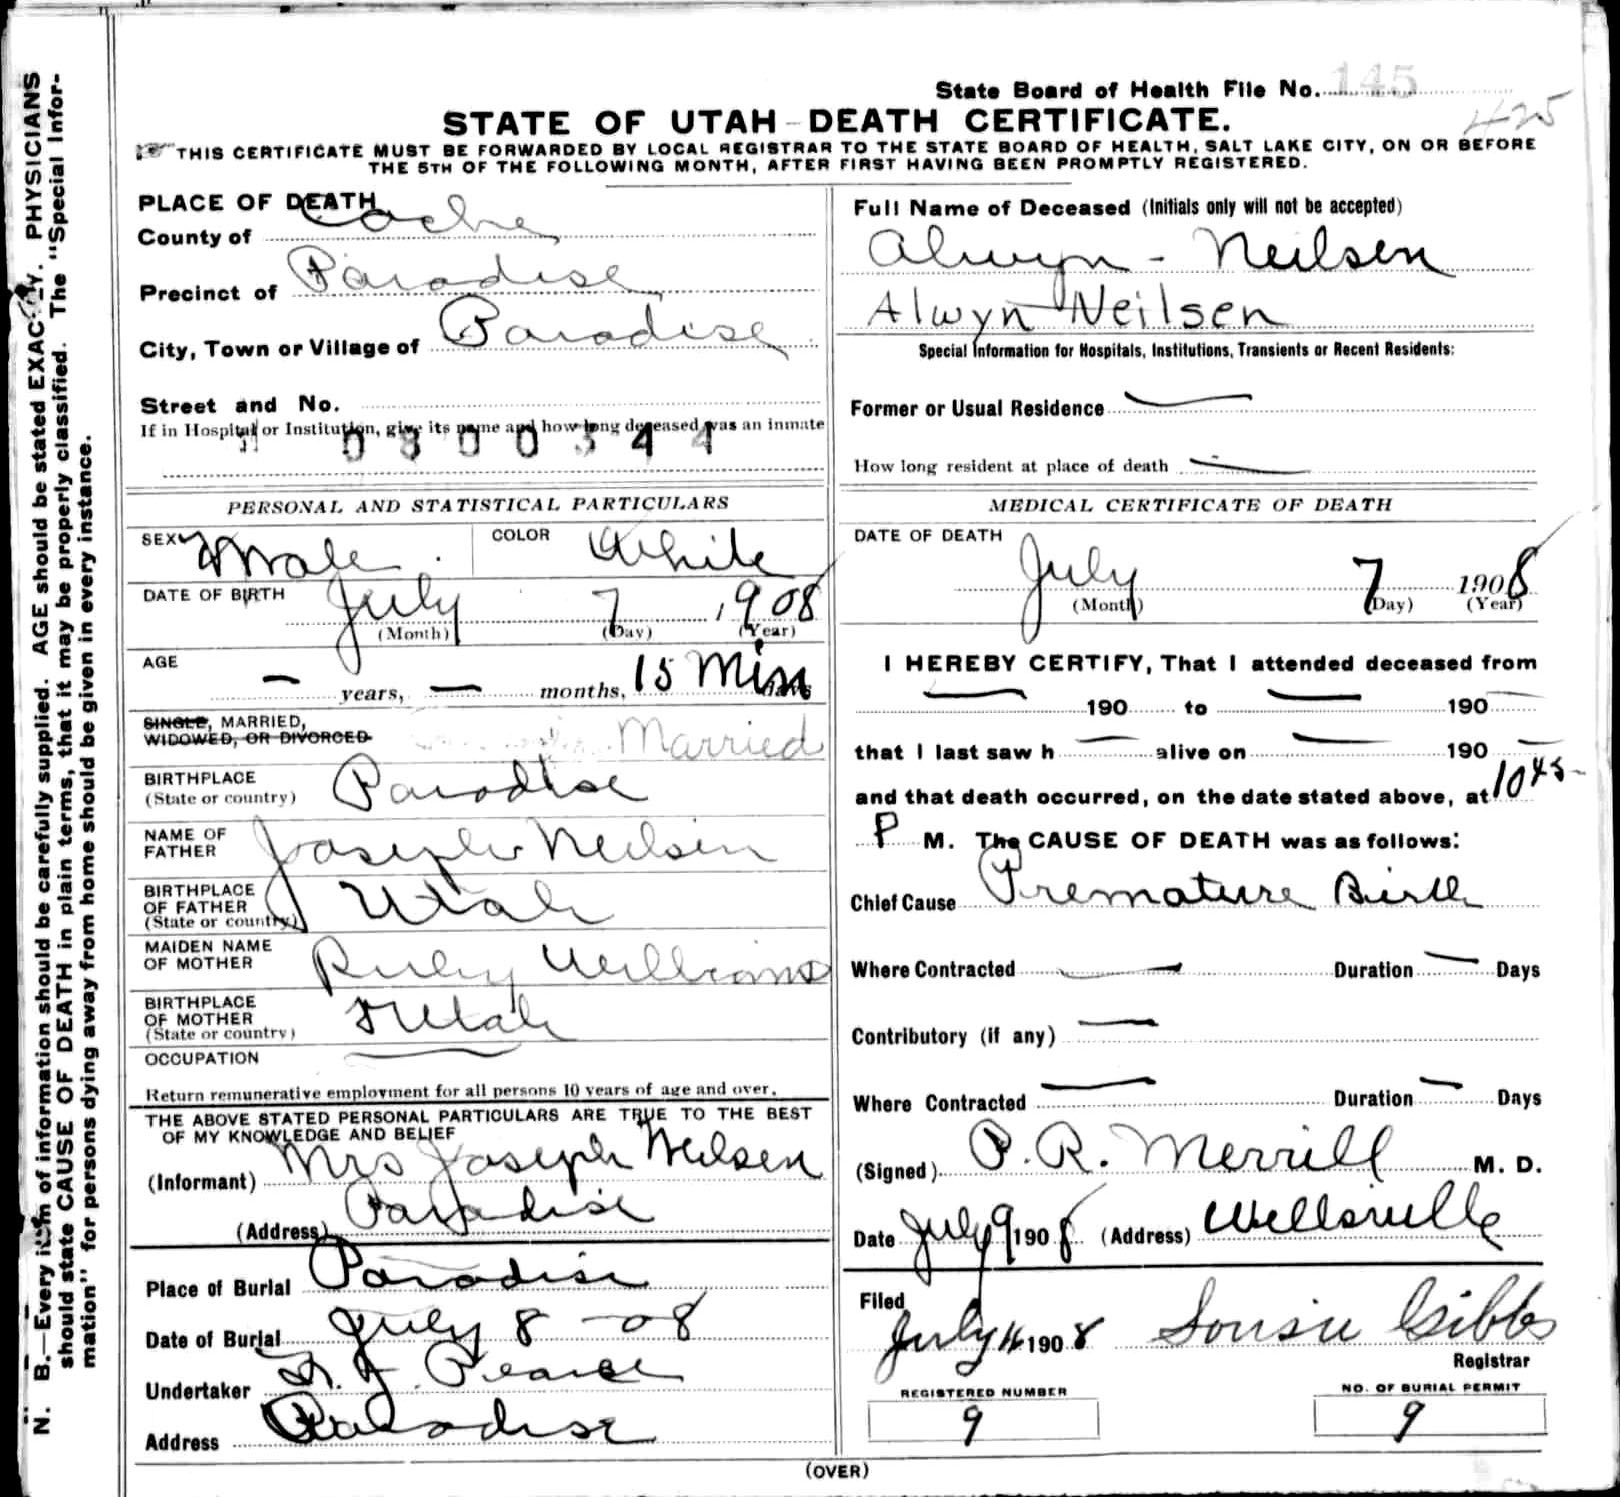 State Board of Health File No. 145
425
STATE OF UTAH - DEATH CERTIFICATE.
THIS CERTIFICATE MUST BE FORWARDED BY LOCAL REGISTRAR TO THE STATE BOARD OF HEALTH, SALT LAKE CITY, ON OR BEFORE
THE 5TH OF THE FOLLOWING MONTH, AFTER FIRST HAVING BEEN PROMPTLY REGISTERED.
N. B.—Every item of information should be carefully supplied. AGE should be stated EXACTLY. PHYSICIANS
should state CAUSE OF DEATH in plain terms, that it may be properly classified. The "Special Infor-
mation" for persons dying away from home should be given in every instance.
PLACE OF DEATH
County of Cache
Precinct of Paradise
City, Town or Village of Paradise
Street and No.
If in Hospital or Institution, give its name and how long deceased was an inmate
0800344
PERSONAL AND STATISTICAL PARTICULARS
SEX Male COLOR White
DATE OF BIRTH July 7, 1908
(Month) (Day) (Year)
AGE — years, — months, 15 Min days
SINGLE, MARRIED,
WIDOWED, OR DIVORCED Married
BIRTHPLACE
(State or country) Paradise
NAME OF
FATHER Joseph Neilsen
BIRTHPLACE
OF FATHER
(State or country) Utah
MAIDEN NAME
OF MOTHER Ruby Williams
BIRTHPLACE
OF MOTHER
(State or country) Utah
OCCUPATION —
Return remunerative employment for all persons 10 years of age and over.
THE ABOVE STATED PERSONAL PARTICULARS ARE TRUE TO THE BEST
OF MY KNOWLEDGE AND BELIEF
(Informant) Mrs Joseph Neilsen
(Address) Paradise
Place of Burial Paradise
Date of Burial July 8 - 08
Undertaker Pearce
Address Paradise
Full Name of Deceased (Initials only will not be accepted)
Alwyn - Neilsen
Alwyn Neilsen
Special Information for Hospitals, Institutions, Transients or Recent Residents:
Former or Usual Residence —
How long resident at place of death —
MEDICAL CERTIFICATE OF DEATH
DATE OF DEATH
July 7 1908
(Month) (Day) (Year)
I HEREBY CERTIFY, That I attended deceased from
— 190 to — 190 —
that I last saw h — alive on — 190 —
and that death occurred, on the date stated above, at 10 45
P M. The CAUSE OF DEATH was as follows:
Chief Cause Premature Birth
Where Contracted — Duration — Days
Contributory (if any) —
Where Contracted — Duration — Days
(Signed) P. R. Merrill M. D.
Date July 9 1908 (Address) Wellsville
Filed
July 1908 Gibbs
Registrar
REGISTERED NUMBER
9
NO. OF BURIAL PERMIT
9
(OVER)